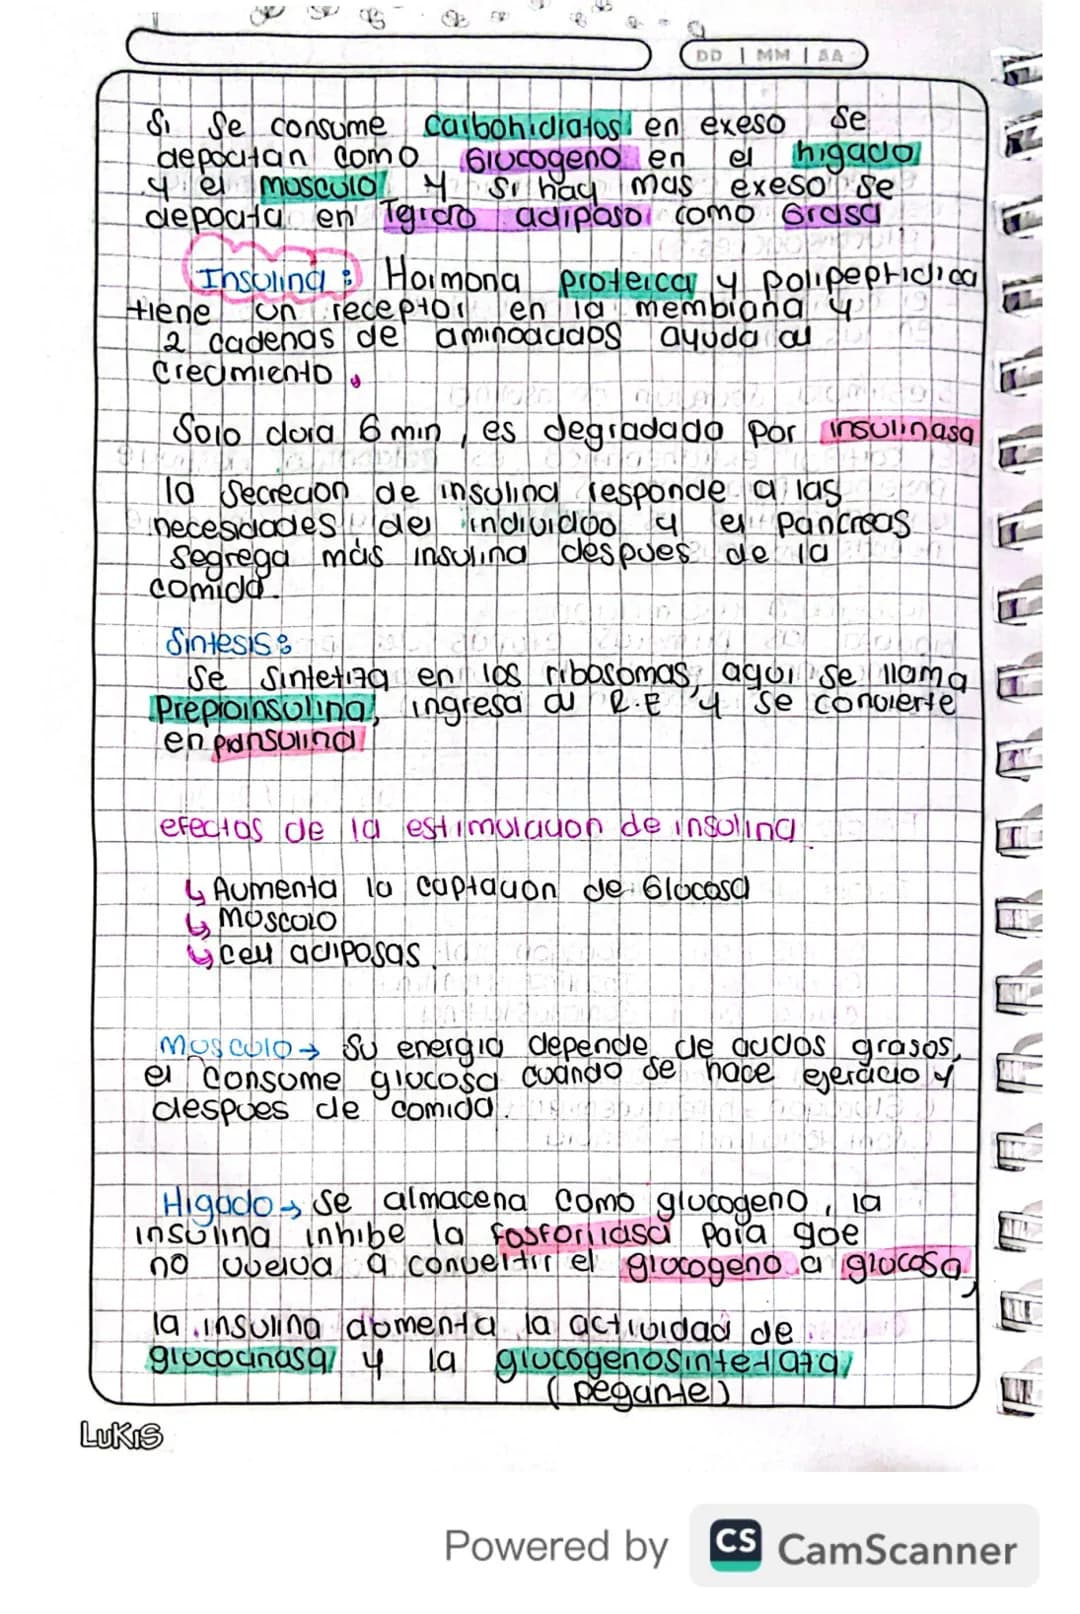 DD | MM | AA
Si se consume carbohidratos en exeso se
depocitan como Glucogeno en el higado
y el musculo y si hay mas exeso se
depocita en Tegido adiposo como Grasa
Insulina: Hormona proteica y polipeptidica
tiene un receptor en la membrana y
2 cadenas de aminoacidos ayuda al
crecimiento.
Solo dura 6 min, es degradado por insulinasa
la secrecion de insulina responde a las
necesidades del individuo y el pancreas
segrega más insulina despues de la
comida.
Sintesis:
Se sintetiza en los ribosomas, aqui se llama
Preproinsulina, ingresa al R.E y se convierte
en prinsulina
efectos de la estimulacion de insulina
↳ Aumenta la captacion de Glucosa
↳ Musculo
↳ cell adiposas
Musculo → Su energia depende de acidos grasos,
el consume glucosa cuando se hace ejercicio y
despues de comida.
Higado → Se almacena como glucogeno, la
insulina inhibe la fosforilasa para que
no vuelva a convertir el glucogeno a glucosa,
la insulina aumenta la actividad de
glucocinasa y la glucogenosintetaza
(pegante)
LuKiS
Powered by CS CamScanner